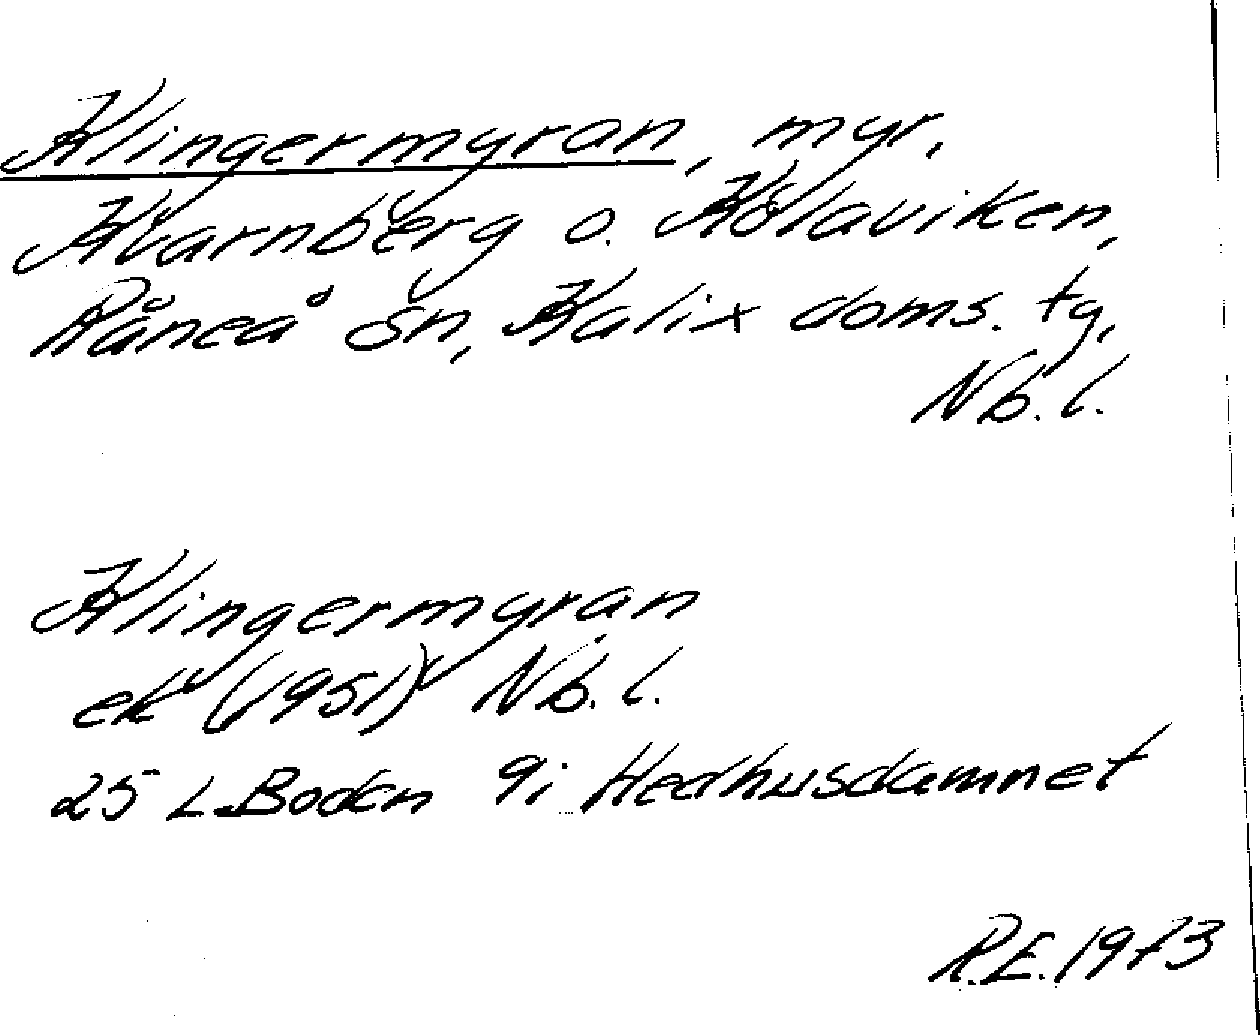 Klingermyran, myr,
Kvarnberg o. Kölaviken,
Råneå sn, Kalix doms. tg,
Nb. l.
Klingermyran
ek (1951) Nb. l.
25 L Boden 9i Hedhusdamnet
R.E. 1973